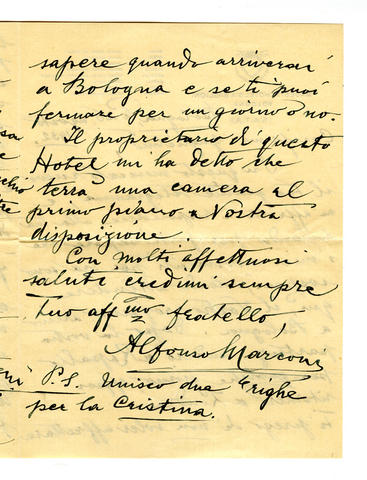 sapere quando arriverai
a Bologna e se ti puoi
fermare per un giorno o no.
Il proprietario di questo
Hotel mi ha detto che
terrà una camera al
primo piano a Vostra
disposizione.
Con molti affettuosi
saluti credimi sempre
tuo affmo fratello,
Alfonso Marconi
P.S. Unisco due righe
per la Cristina.